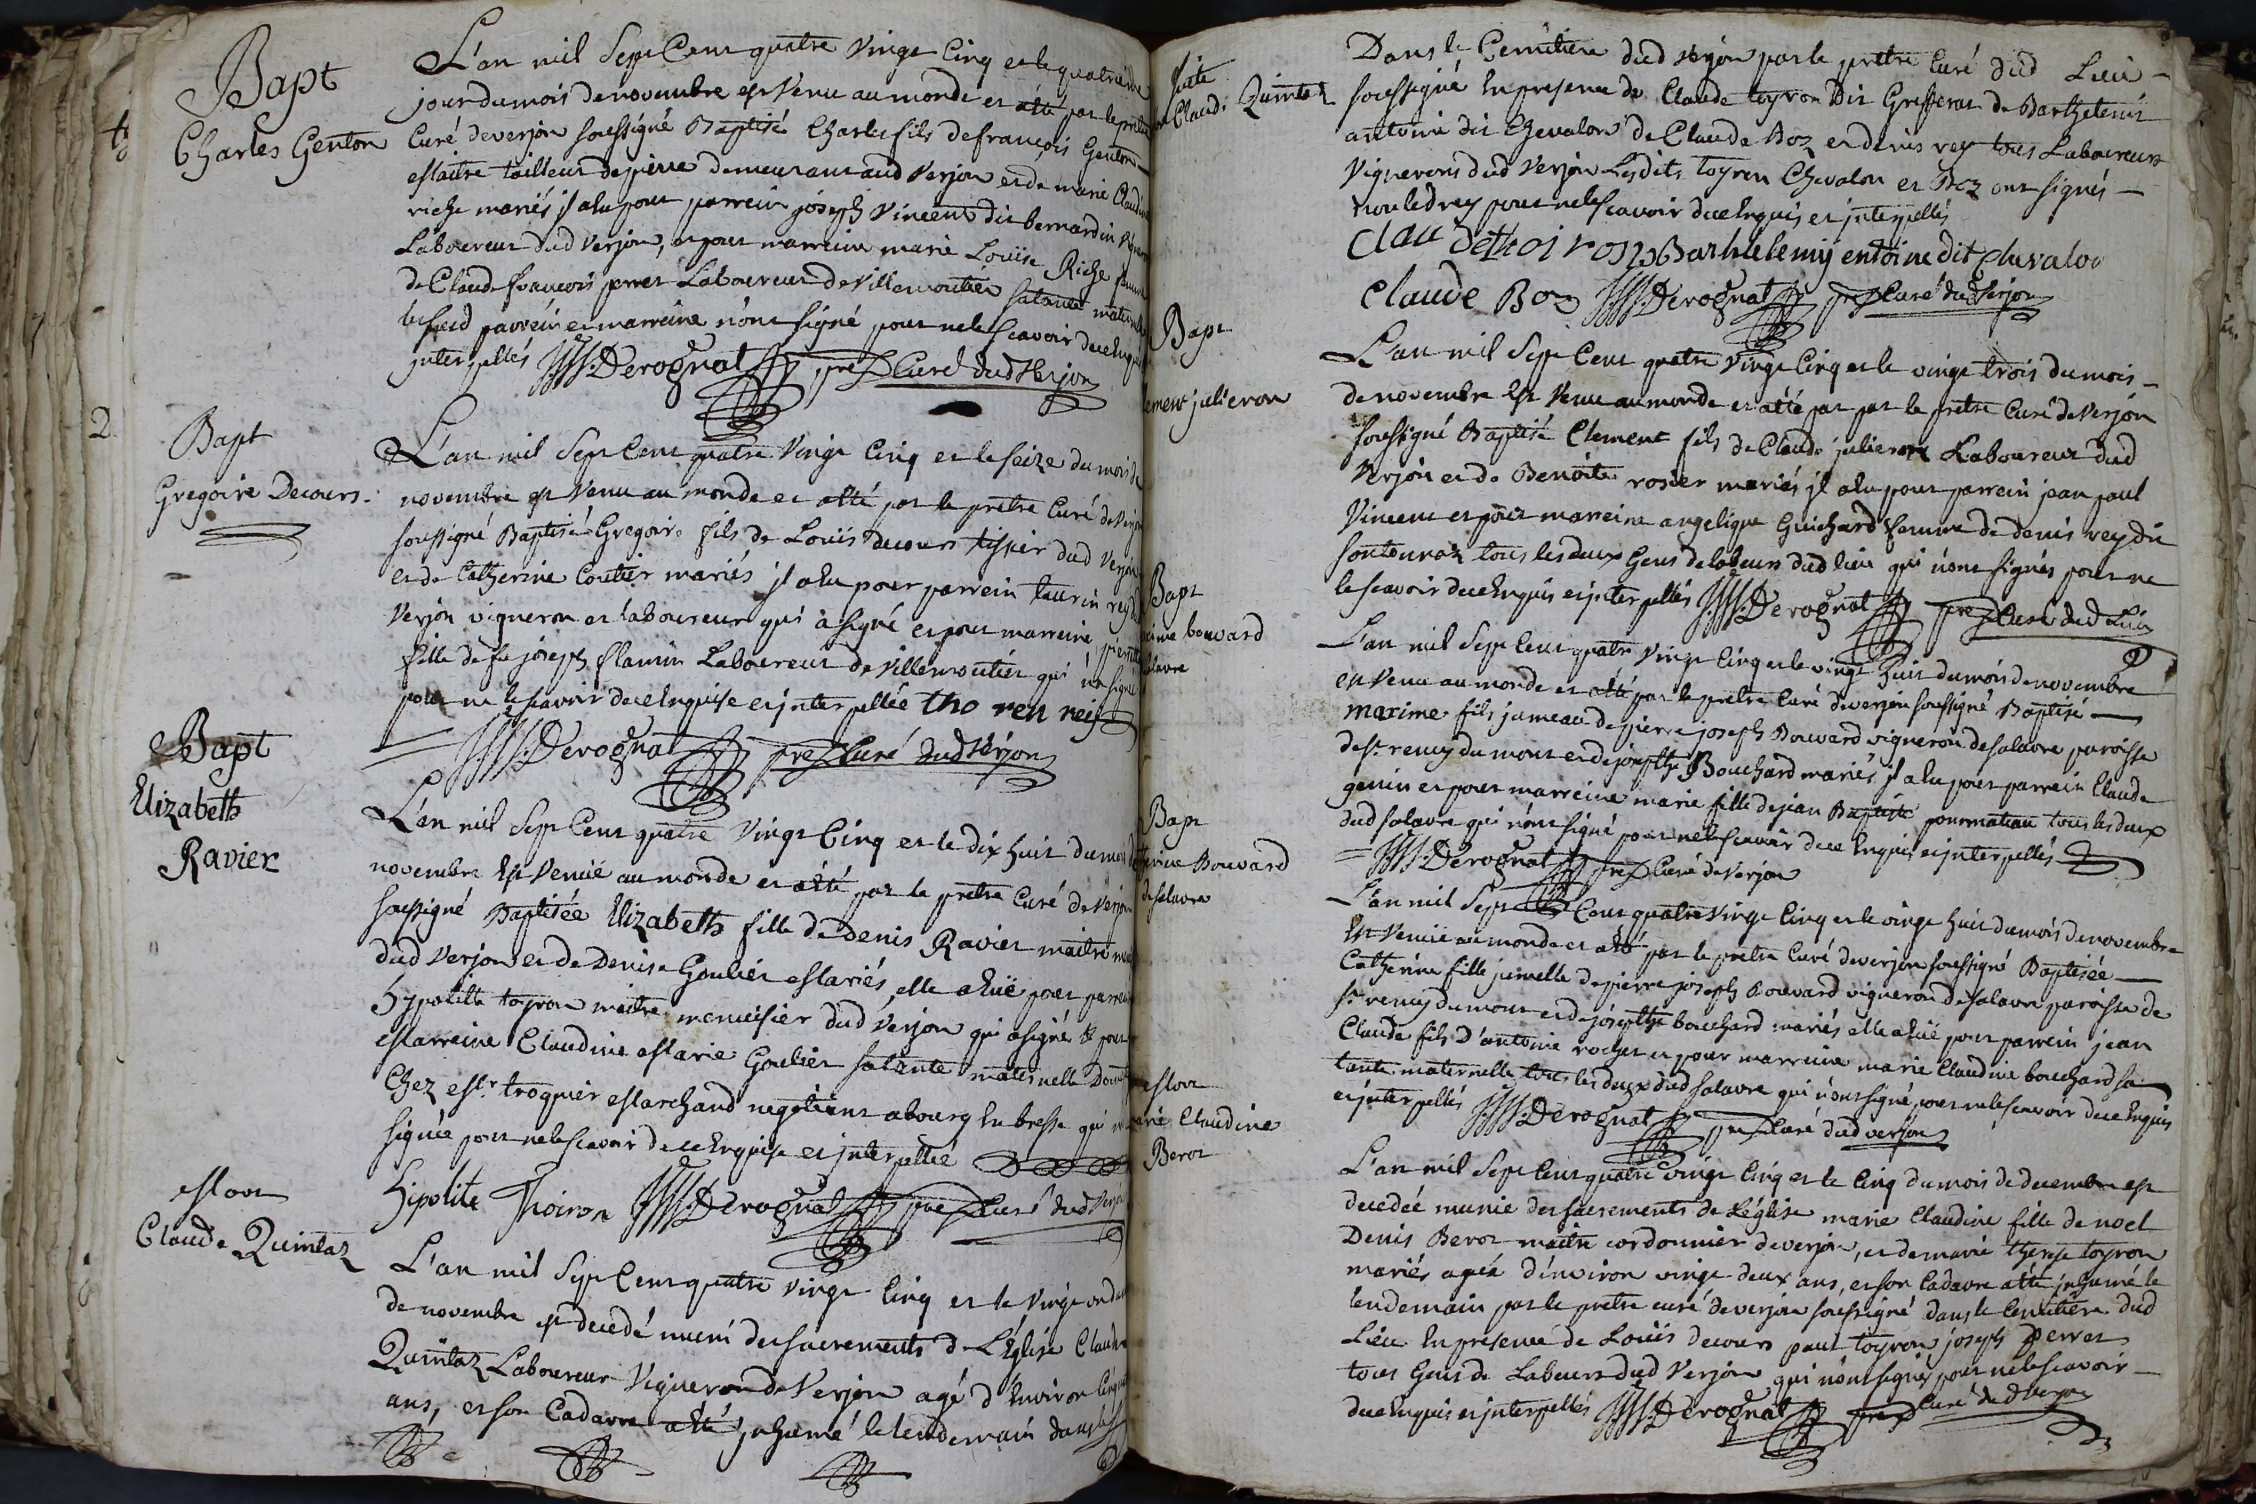 Bapt
Charles Genton
L'an mil Sept Cent quatre Vingt Cinq et le quatrieme
jour du mois de novembre est Venu au monde et atté par le pretre
Curé de verjon soussigné Baptisé Charles fils de françois Genton
Maitre tailleur de pierre demeurant aud Verjon et de marie Claudine
riche mariés il a lu pour parrein joseph Vincent dit bernardin Vigneron
Laboureur dud Verjon, et pour marreine marie Louïse Riche femme
de Claude françois perret Laboureur de Villemoutier sa tante maternelle
lesqued parrein et marreine n'ont signé pour ne le scavoir de ce Enquis
interpellés JJJJ. Derognat pre Curé dud Verjon
2
Bapt
Gregoire Decours
L'an mil Sept Cent quatre Vingt Cinq et le seize du mois de
novembre est Venu au monde et atté par le pretre Curé de Verjon
soussigné Baptisé Gregoire fils de Louïs decours tissier dud Verjon
et de Catherine Coutier mariés il a lu pour parrein taurin rey de
Verjon vigneron et laboureur qui à signé et pour marreine pierrette
fille de fu joseph flamin Laboureur de Villemoutier qui n'a signé
pour ne le scavoir de ce Enquise et interpellée tho ren reij
JJJJ. Derognat pre Curé dud Verjon
Bapt
Elizabeth
Ravier
L'an mil Sept Cent quatre Vingt Cinq et le dix huit du mois de
novembre Est Venuë au monde et atté par le pretre Curé de Verjon
soussigné Baptisée Elizabeth fille de Denis Ravier maitre
dud Verjon et de Denise Goulier Mariés, elle a luë pour parrein
hypolitte toyron maitre menuisier dud Verjon qui a signé & pour
Marreine Claudine Marie Goulier sa tente maternelle
Chez Mr. troquier Marchand negotiant a bourg En bresse qui n'a
signée pour ne le scavoir de ce Enquise et interpellée
hipolite Thoiron JJJJ. Derognat pre Curé dud Verjon
Mort
Claude Quintaz
L'an mil Sept Cent quatre Vingt Cinq et le Vingt un du
de novembre est decedé muni des sacrements de L'Eglise Claude
Quintaz Laboureur Vigneron de Verjon agé d'Environ Cinquante
ans, et son Cadavre atté inhumé le lendemain dans le
suite
Claude Quintaz
Dans le Cemitiere dud Verjon par le pretre Curé dud Lieu
soussigné En presence de Claude toyron Dit Gresserat de Barthelemi
antoine dit Chevalon de Claude Boz et denis rey tous Laboureurs
Vignerons dud Verjon Lesdits toyron Chevalon et Boz ont signés
non led rey pour ne le scavoir de ce Enquis et interpellés
Clau de thoiron Barthelemij entoine dit Chevalon
Claude Boz JJJJ. Derognat pre Curé dud Verjon
Bapt
Clement julieron
L'an mil Sept Cent quatre Vingt Cinq et le vingt trois du mois
de novembre Est Venu au monde et atté par par le pretre Curé de Verjon
soussigné Baptisé Clement fils de Claude julieron Laboureur dud
Verjon et de Benoite rosier mariés il a lu pour parrein jean paul
Vincent et pour marreine angelique Guichard femme de denis rey du
fontounaz tous les deux Gens de labeurs dud lieu qui n'ont signés pour ne
le scavoir de ce Enquis et interpellés JJJJ. Derognat pre Curé dud Lieu
Bapt
maxime bouvard
Salavre
L'an mil Sept Cent quatre Vingt Cinq et le vingt huit du mois de novembre
est Venu au monde et atté par le pretre Curé de verjon soussigné Baptisé
maxime fils jumeau de pierre joseph Bouvard vigneron de salavre paroisse
de st. remy du mont et de josepthe Bouchard mariés, il a lu pour parrein Claude
genin et pour marreine marie fille de jean Baptiste pommatau tous les deux
dud salavre qui n'ont signé pour ne le scavoir de ce Enquis et interpellés
JJJJ. Derognat pre Curé de Verjon
Bapt
Catherine Bouvard
de salavre
L'an mil Sept Cent quatre Vingt Cinq et le vingt huit du mois de novembre
Est Venuë au monde et atté par le pretre Curé de verjon soussigné Baptisée
Catherine fille jumelle de pierre joseph Bouvard vigneron de salavre paroisse de
st. remy du mont et de josepthe bouchard mariés elle a luë pour parrein jean
Claude fils d'antoine rochet et pour marreine marie Claudine bouchard sa
tante maternelle tous les deux dud salavre qui n'ont signé pour ne le scavoir de ce Enquis
et interpellés JJJJ. Derognat pre Curé dud verjon
Mort
marie Claudine
Berot
L'an mil Sept Cent quatre vingt Cinq et le Cinq du mois de decembre est
decedée munie des sacrements de L'église marie Claudine fille de noel
Denis Berot maitre cordonnier de verjon, et de marie therese toyron
mariés agée d'environ vingt deux ans, et son Cadavre atté inhumé le
lendemain par le pretre curé de verjon soussigné dans le Cemitiere dud
Lieu En presence de Louïs decours paul toyron joseph perret
tous Gens de Labeurs dud Verjon qui n'ont signés pour ne le scavoir
de ce Enquis et interpellés JJJJ. Derognat pre Curé dud Verjon